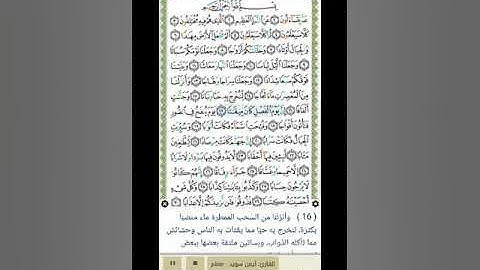 بِسْمِ ٱللَّهِ ٱلرَّحْمَٰنِ ٱلرَّحِيمِ
عَمَّ يَتَسَآءَلُونَ ١ عَنِ ٱلنَّبَإِ ٱلْعَظِيمِ ٢ ٱلَّذِى هُمْ فِيهِ مُخْتَلِفُونَ ٣
كَلَّا سَيَعْلَمُونَ ٤ ثُمَّ كَلَّا سَيَعْلَمُونَ ٥ أَلَمْ نَجْعَلِ ٱلْأَرْضَ مِهَٰدًا ٦
وَٱلْجِبَالَ أَوْتَادًا ٧ وَخَلَقْنَٰكُمْ أَزْوَٰجًا ٨ وَجَعَلْنَا نَوْمَكُمْ سُبَاتًا
٩ وَجَعَلْنَا ٱلَّيْلَ لِبَاسًا ١٠ وَجَعَلْنَا ٱلنَّهَارَ مَعَاشًا ١١ وَبَنَيْنَا
فَوْقَكُمْ سَبْعًا شِدَادًا ١٢ وَجَعَلْنَا سِرَاجًا وَهَّاجًا ١٣ وَأَنزَلْنَا
مِنَ ٱلْمُعْصِرَٰتِ مَآءً ثَجَّاجًا ١٤ لِّنُخْرِجَ بِهِۦ حَبًّا وَنَبَاتًا ١٥ وَجَنَّٰتٍ
أَلْفَافًا ١٦ إِنَّ يَوْمَ ٱلْفَصْلِ كَانَ مِيقَٰتًا ١٧ يَوْمَ يُنفَخُ فِى ٱلصُّورِ
فَتَأْتُونَ أَفْوَاجًا ١٨ وَفُتِحَتِ ٱلسَّمَآءُ فَكَانَتْ أَبْوَٰبًا ١٩ وَسُيِّرَتِ
ٱلْجِبَالُ فَكَانَتْ سَرَابًا ٢٠ إِنَّ جَهَنَّمَ كَانَتْ مِرْصَادًا ٢١ لِّلطَّٰغِينَ
مَـَٔابًا ٢٢ لَّٰبِثِينَ فِيهَآ أَحْقَابًا ٢٣ لَّا يَذُوقُونَ فِيهَا بَرْدًا وَلَا شَرَابًا
٢٤ إِلَّا حَمِيمًا وَغَسَّاقًا ٢٥ جَزَآءً وِفَاقًا ٢٦ إِنَّهُمْ كَانُوا۟
لَا يَرْجُونَ حِسَابًا ٢٧ وَكَذَّبُوا۟ بِـَٔايَٰتِنَا كِذَّابًا ٢٨ وَكُلَّ شَىْءٍ
أَحْصَيْنَٰهُ كِتَٰبًا ٢٩ فَذُوقُوا۟ فَلَن نَّزِيدَكُمْ إِلَّا عَذَابًا ٣٠
( 16 ) وأنزلنا من السحب الممطرة ماء منصبا
بكثرة، لنخرج به حبا مما يقتات به الناس وحشائش
مما تأكله الدواب، وبساتين ملتفة بعضها ببعض
القارئ: أيمن سويد - معلم